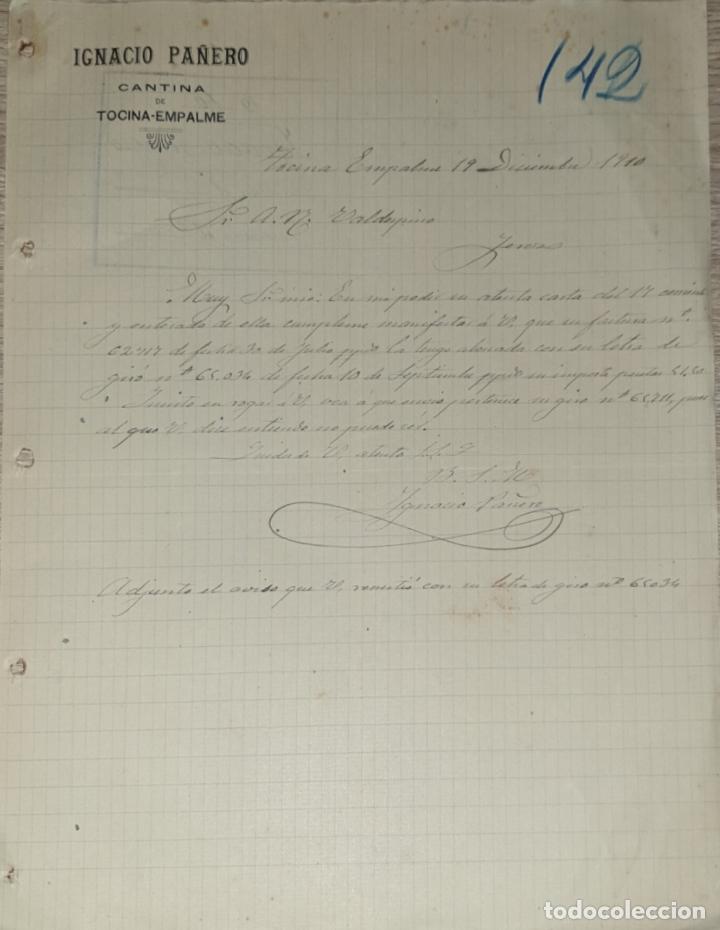 IGNACIO PAÑERO
CANTINA
DE
TOCINA-EMPALME
142
Tocina Empalme 19 Diciembre 1910
Sr. A. R. Valdespino
Jerez
Muy Sr. mio: En mi poder su atenta carta del 17 corriente
y enterado de ella cumpleme manifestar á V. que su factura nº.
62.717 de fecha 30 de Julio ppdo la tengo abonada con su letra de
giro nº 65.034 de fecha 10 de Septiembre ppdo su importe pesetas 51,50.
rogar á V. vea a que envio pertenece su giro nº 65,711, pues
al que V. dice entiendo no puede ser.
Queda de V. atento S.S.
B. S. M.
Ignacio Pañero
Adjunto el aviso que V. remitió con su letra de giro nº 65034
todocoleccion.net